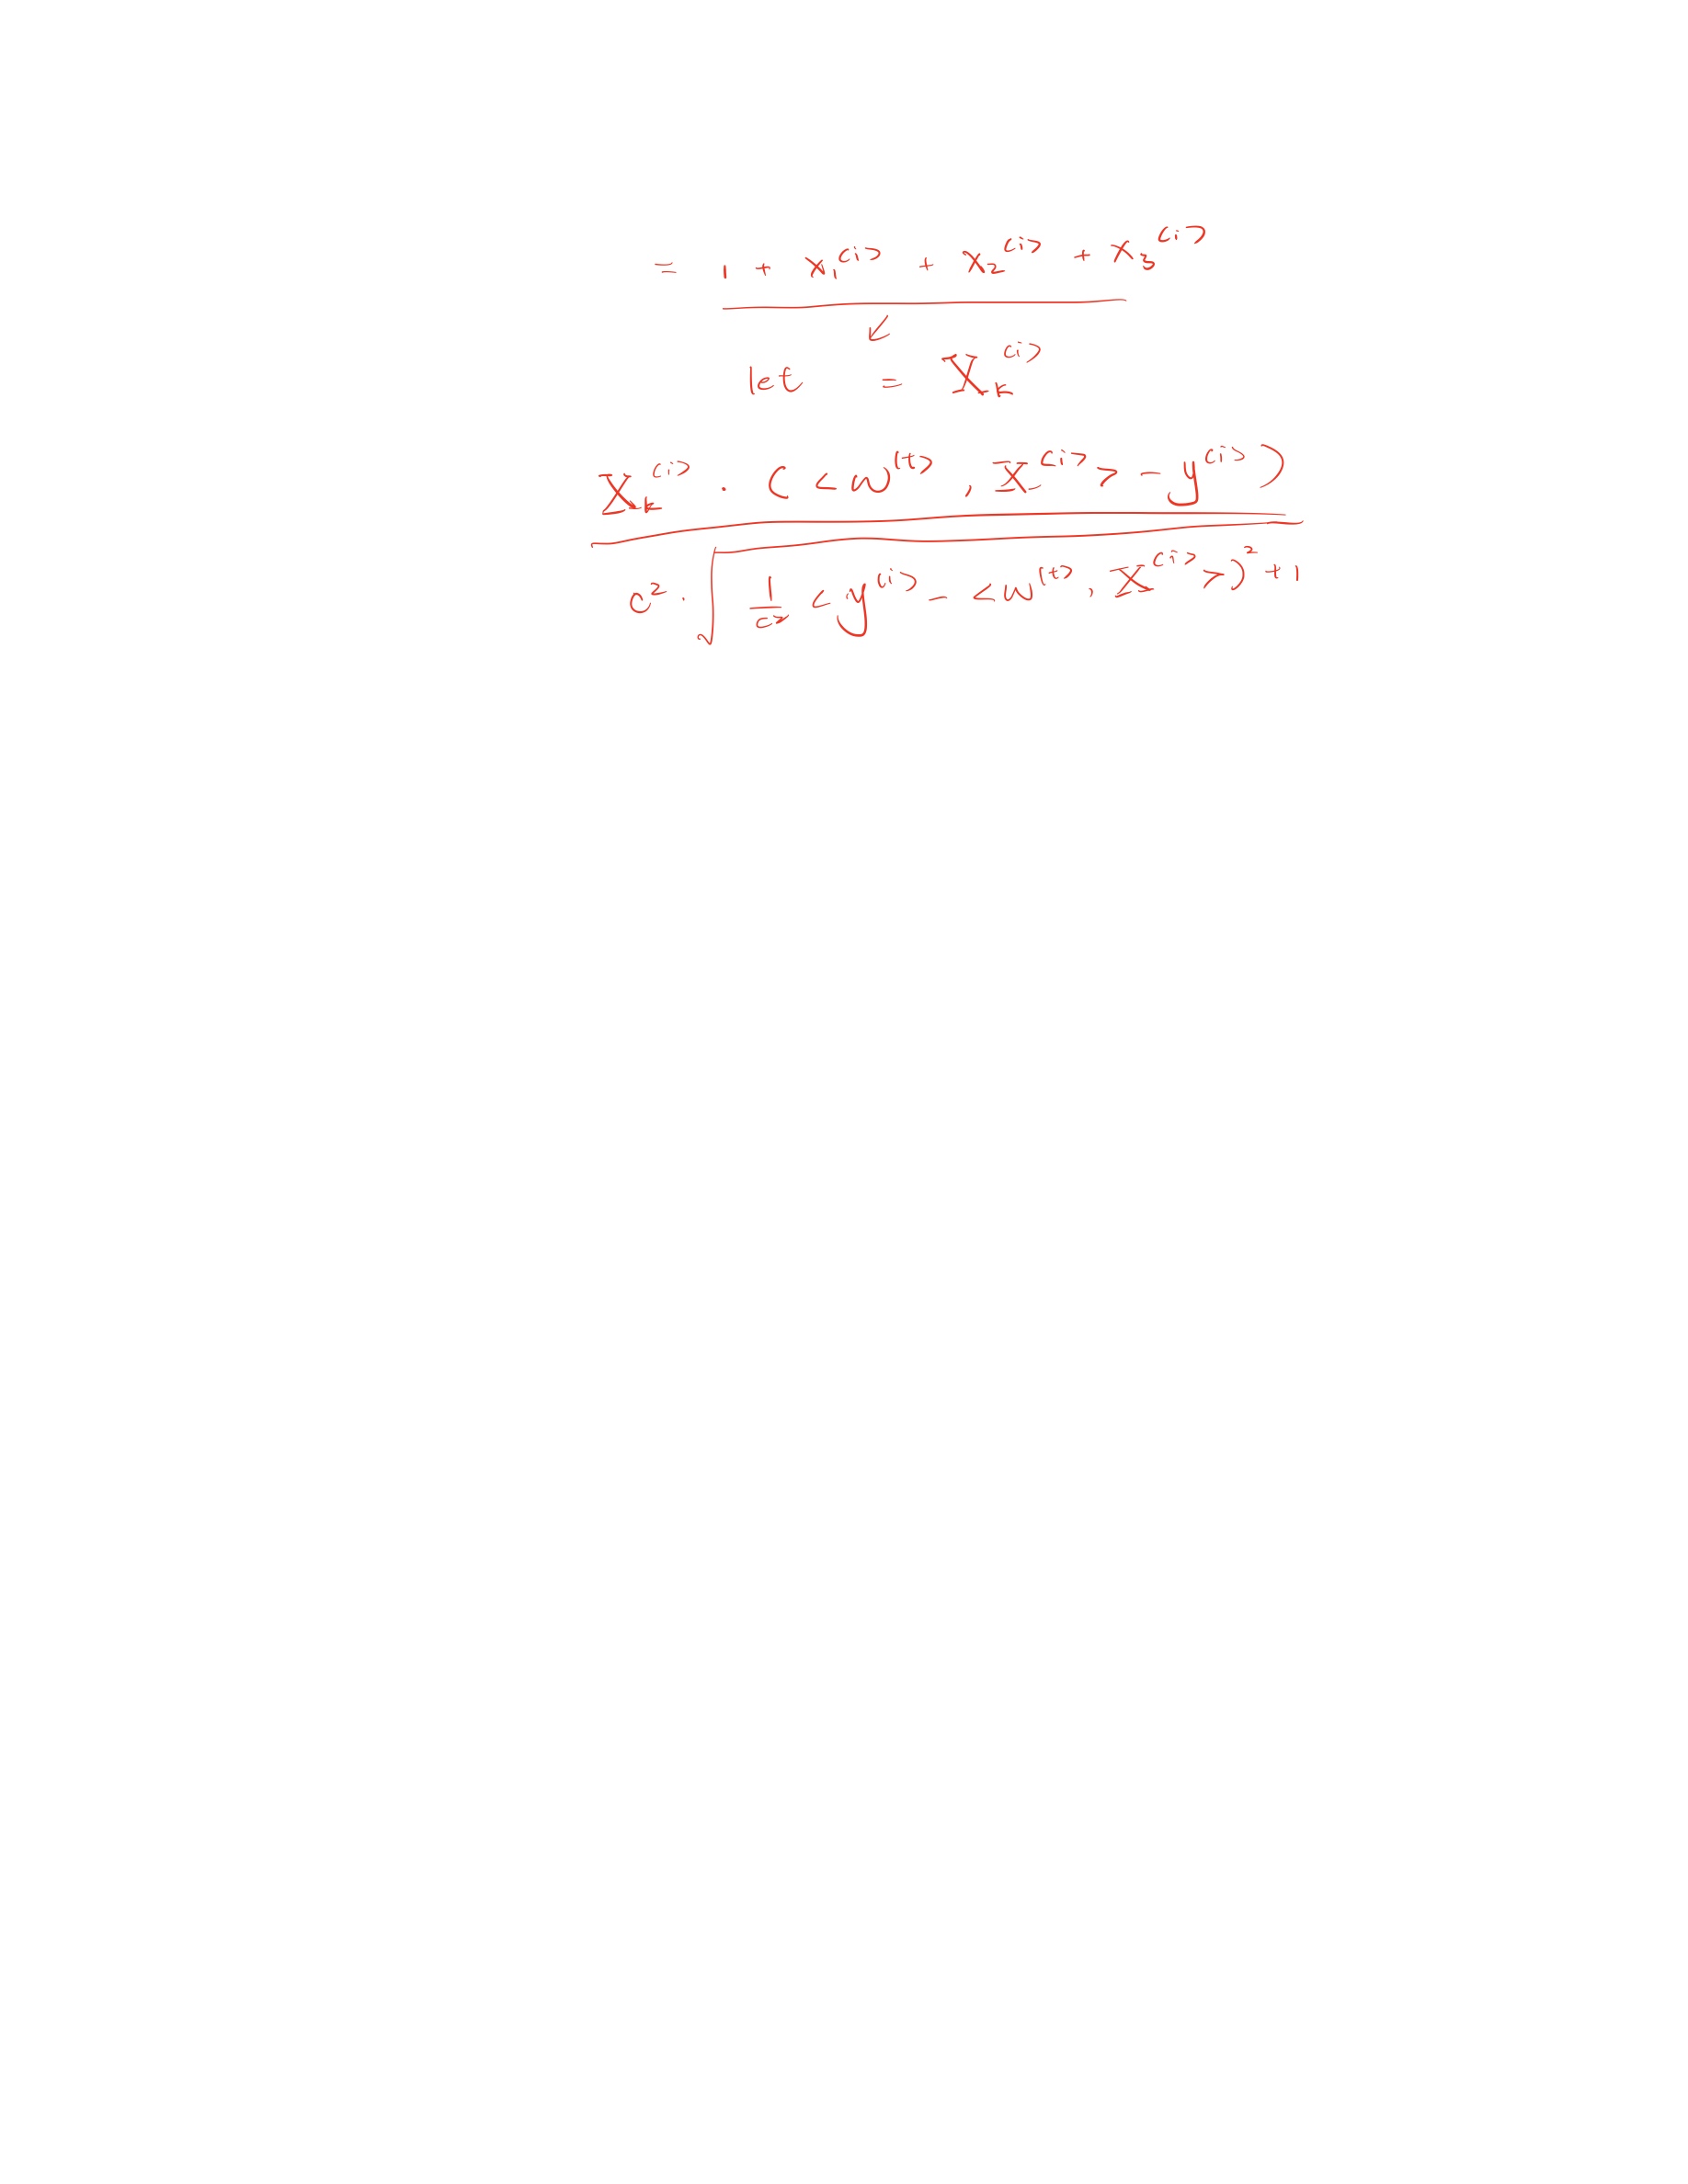 = 1 + x₁⁽ⁱ⁾ + x₂⁽ⁱ⁾ + x₃⁽ⁱ⁾
↙
let = X_k⁽ⁱ⁾
X_k⁽ⁱ⁾ · (<w⁽ᵗ⁾, X⁽ⁱ⁾> - y⁽ⁱ⁾)
c² · √ 1/c² (y⁽ⁱ⁾ - <w⁽ᵗ⁾, X⁽ⁱ⁾>)² + 1